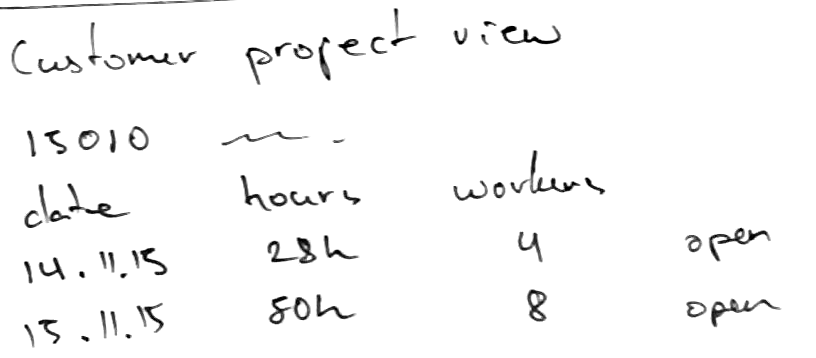 Customer project view
15010
date hours workers
14.11.15 28h 4 open
15.11.15 50h 8 open